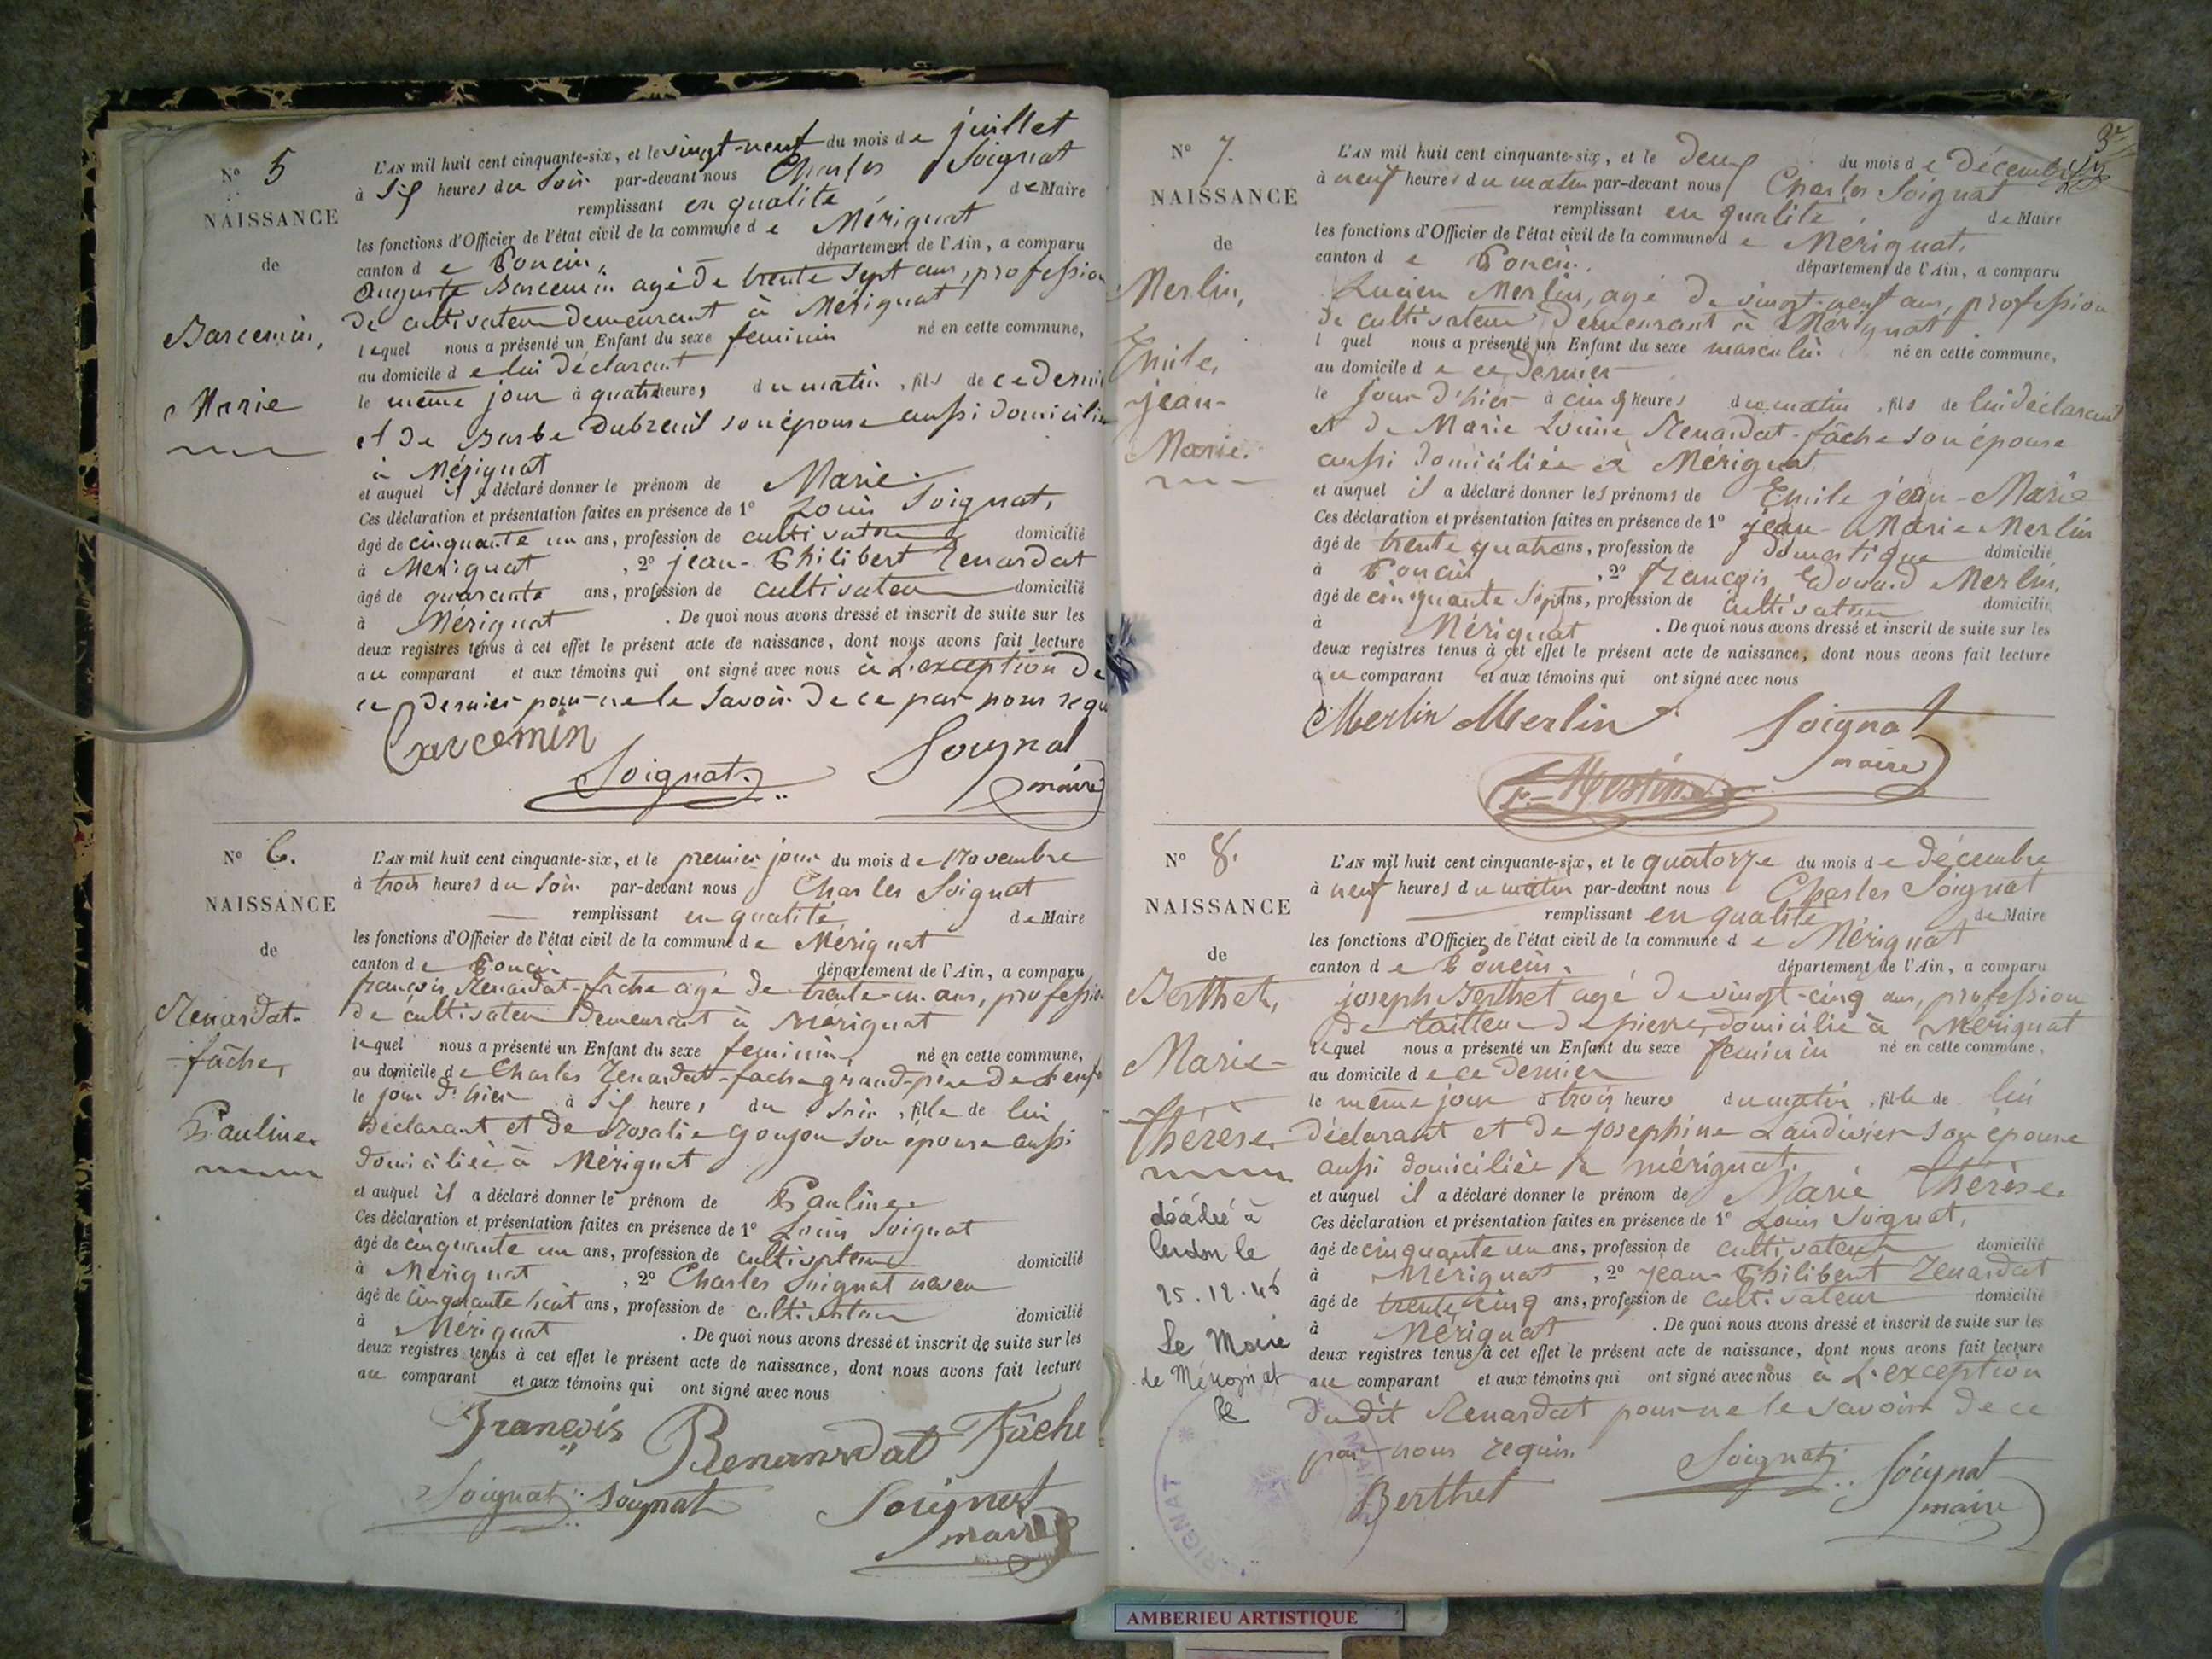 N° 5
NAISSANCE
de
Barcemin,
Marie
L'AN mil huit cent cinquante-six, et le vingt-neuf du mois de juillet
à six heures du soir par-devant nous Charles Soignat
remplissant en qualité de Maire
les fonctions d'Officier de l'état civil de la commune de Mérignat
canton de Poncin, département de l'Ain, a comparu
Auguste Barcemin agé de trente sept ans, profession
de cultivateur demeurant à Mérignat
lequel nous a présenté un Enfant du sexe feminin né en cette commune,
au domicile de lui déclarant
le même jour à quatre heures du matin, fils de ce dernier
et de Barbe Dubreuil son épouse aussi domiciliée
à Mérignat
et auquel il a déclaré donner le prénom de Marie.
Ces déclaration et présentation faites en présence de 1° Louis Soignat,
âgé de cinquante un ans, profession de cultivateur domicilié
à Mérignat, 2° jean-Philibert Renardat
âgé de quarante ans, profession de cultivateur domicilié
à Mérignat. De quoi nous avons dressé et inscrit de suite sur les
deux registres tenus à cet effet le présent acte de naissance, dont nous avons fait lecture
au comparant et aux témoins qui ont signé avec nous à L'exception de
ce dernier pour ne le savoir de ce par nous requ
Barcemin
Soignat Soignat
maire
N° 6.
NAISSANCE
de
Renardat-
fâche,
Pauline
L'AN mil huit cent cinquante-six, et le premier jour du mois de Novembre
à trois heures du soir par-devant nous Charles Soignat
remplissant en qualité de Maire
les fonctions d'Officier de l'état civil de la commune de Mérignat
canton de Poncin département de l'Ain, a comparu
françois Renardat-fâche agé de trente-un ans, profession
de cultivateur demeurant à Mérignat
lequel nous a présenté un Enfant du sexe feminin, né en cette commune,
au domicile de Charles Renardat-fache grand-père de l'enf
le jour d'hier à six heures du soir, fille de lui
déclarant et de Rosalie Goujon son épouse aussi
domiciliée à Mérignat
et auquel il a déclaré donner le prénom de Pauline
Ces déclaration et présentation faites en présence de 1° Louis Soignat
âgé de cinquante un ans, profession de cultivateur domicilié
à Mérignat, 2° Charles Soignat neveu
âgé de cinquante huit ans, profession de cultivateur domicilié
à Mérignat. De quoi nous avons dressé et inscrit de suite sur les
deux registres tenus à cet effet le présent acte de naissance, dont nous avons fait lecture
au comparant et aux témoins qui ont signé avec nous
François Renanrdat Fâche
Soignat Soignat Soignat
maire
N° 7.
NAISSANCE
de
Merlin,
Emile,
jean-
Marie.
L'AN mil huit cent cinquante-six, et le deux du mois de décembre
à neuf heures du matin par-devant nous Charles Soignat
remplissant en qualité de Maire
les fonctions d'Officier de l'état civil de la commune de Mérignat,
canton de Poncin. département de l'Ain, a comparu
Lucien Merlin, agé de vingt-neuf ans, profession
de cultivateur demeurant à Mérignat
lquel nous a présenté un Enfant du sexe masculin né en cette commune,
au domicile de ce dernier
le jour d'hier à cinq heures du matin, fils de lui déclarant
et de Marie Louise Renardat-fâche son épouse
aussi domiciliée à Mérignat
et auquel il a déclaré donner les prénoms de Emile jean-Marie
Ces déclaration et présentation faites en présence de 1° jean-Marie Merlin
âgé de trente quatre ans, profession de domestique domicilié
à Poncin, 2° françois Edouard Merlin,
âgé de cinquante sept ans, profession de cultivateur domicilié
à Mérignat. De quoi nous avons dressé et inscrit de suite sur les
deux registres tenus à cet effet le présent acte de naissance, dont nous avons fait lecture
au comparant et aux témoins qui ont signé avec nous
Merlin Merlin Soignat
maire
N° 8.
NAISSANCE
de
Berthet,
Marie-
Thérèse
décédée à
le
25.12.45
Le Maire
de Mérignat
L'AN mil huit cent cinquante-six, et le quatorze du mois de décembre
à neuf heures du matin par-devant nous Charles Soignat
remplissant en qualité de Maire
les fonctions d'Officier de l'état civil de la commune de Mérignat
canton de Poncin. département de l'Ain, a comparu
joseph Berthet agé de vingt-cinq ans, profession
de tailleur de pierre, domicilié à Mérignat
lequel nous a présenté un Enfant du sexe feminin né en cette commune,
au domicile de ce dernier
le même jour à trois heures du matin, fille de lui
déclarant et de josephine Laudivier son épouse
aussi domiciliée à mérignat.
et auquel il a déclaré donner le prénom de Marie Thérèse
Ces déclaration et présentation faites en présence de 1° Louis Soignat,
âgé de cinquante un ans, profession de cultivateur domicilié
à Mérignat, 2° jean-Philibert Renardat
âgé de trente cinq ans, profession de cultivateur domicilié
à Mérignat. De quoi nous avons dressé et inscrit de suite sur les
deux registres tenus à cet effet le présent acte de naissance, dont nous avons fait lecture
au comparant et aux témoins qui ont signé avec nous à L'exception
du dit Renardat pour ne le savoir de ce
par nous requis.
Berthet Soignat Soignat
maire
AMBERIEU ARTISTIQUE